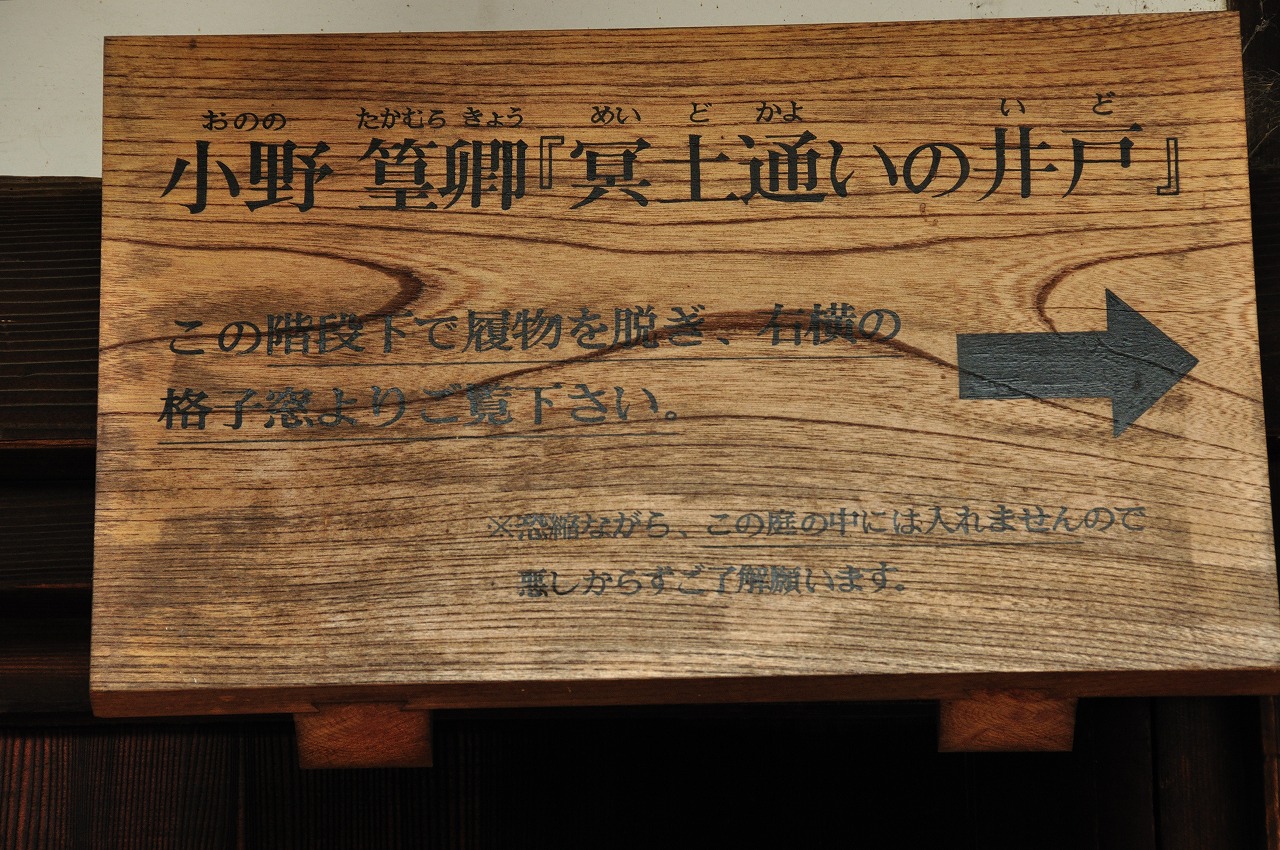 おのの たかむら きょう めい ど かよ い ど
小野 篁卿『冥土通いの井戸』
この階段下で履物を脱ぎ、右横の
格子窓よりご覧下さい。
※恐縮ながら、この庭の中には入れませんので
悪しからずご了解願います。